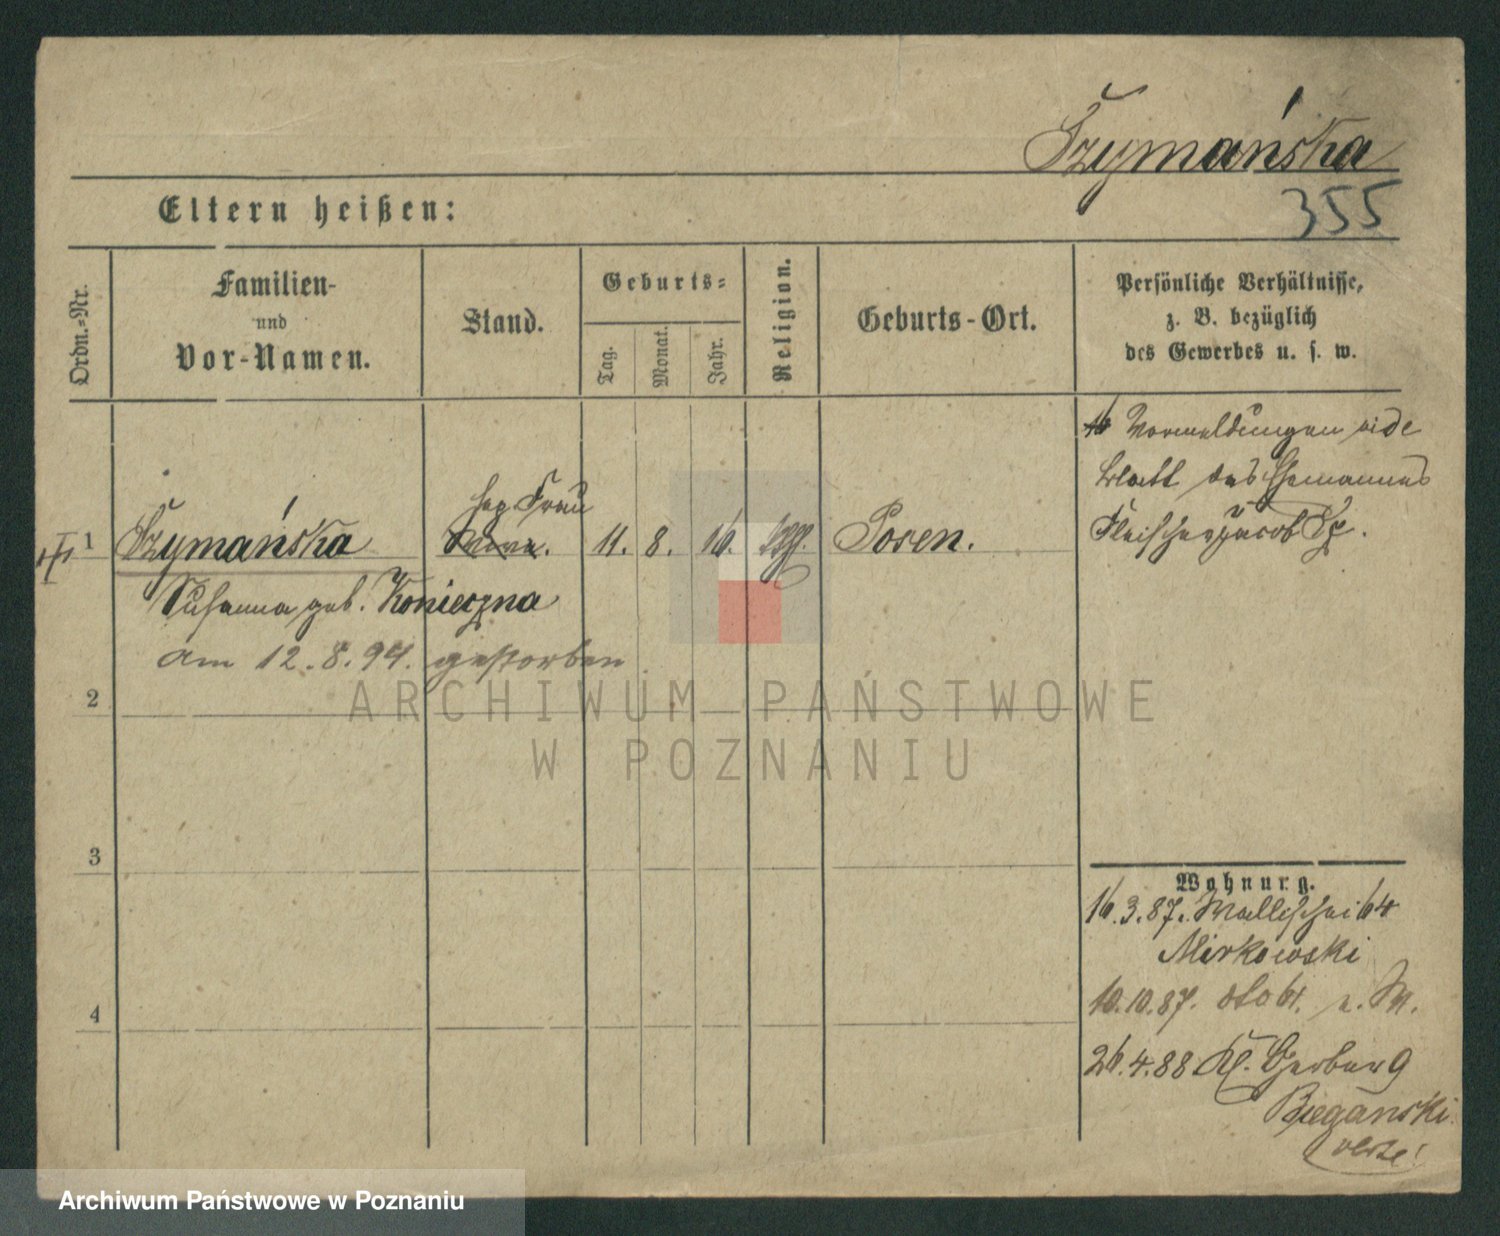 Szymańska
355
Eltern heißen:
Ordn.-Nr.
Familien-
und
Vor-Namen.
Stand.
Geburts-
Tag.
Monat.
Jahr.
Religion.
Geburts-Ort.
Persönliche Verhältnisse,
z. B. bezüglich
des Gewerbes u. s. w.
Vormeldungen vide
Blatt des Ehemannes
Fleischer Jacob Sz.
sep Frau
1 Szymańska
11. 8. 16. Posen.
Susanna geb. Konieczna
am 12.8.94. gestorben
2
3
4
Wohnung.
16.3.87. Wallischei 64
Mirkowski
10.10.87. 61. b. M.
26.4.88 Kl. Gerber 9
Bieganski
verte!
ARCHIWUM PAŃSTWOWE
W POZNANIU
Archiwum Państwowe w Poznaniu